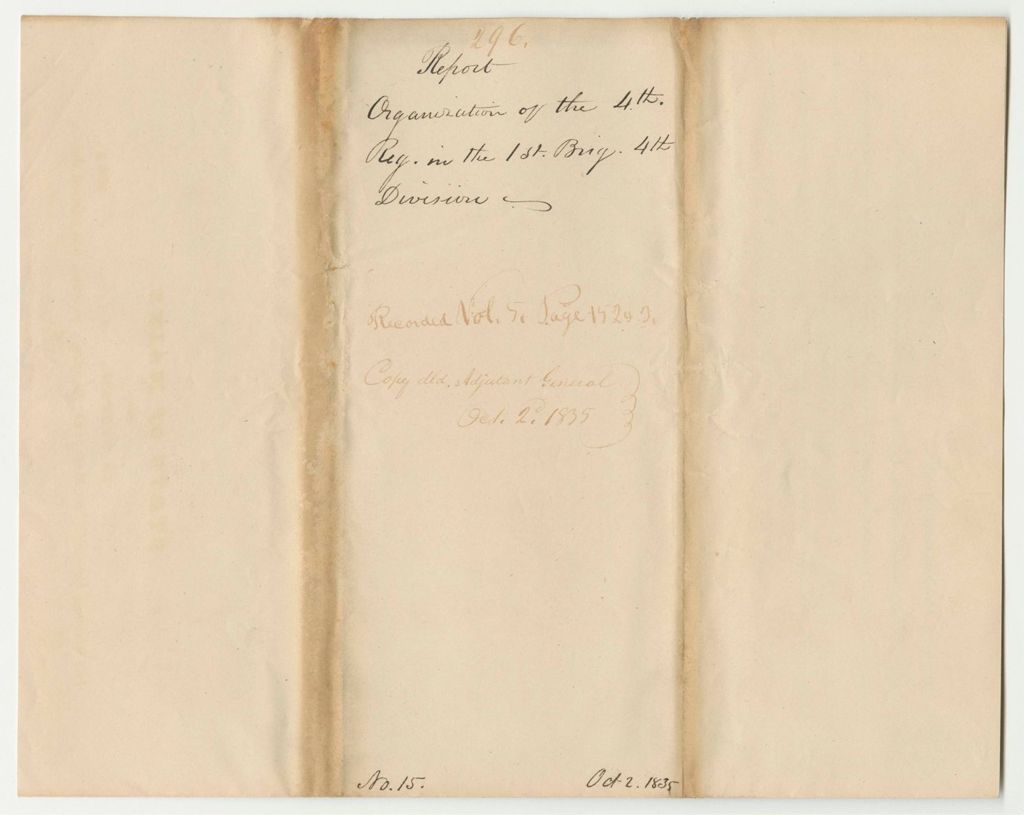 296.
Report
Organization of the 4th.
Reg. in the 1st. Brig. 4th
Division
Recorded Vol. 5. Page
Copy dld. Adjutant General
Oct. 2d. 1835
No. 15.
Oct 2. 1835